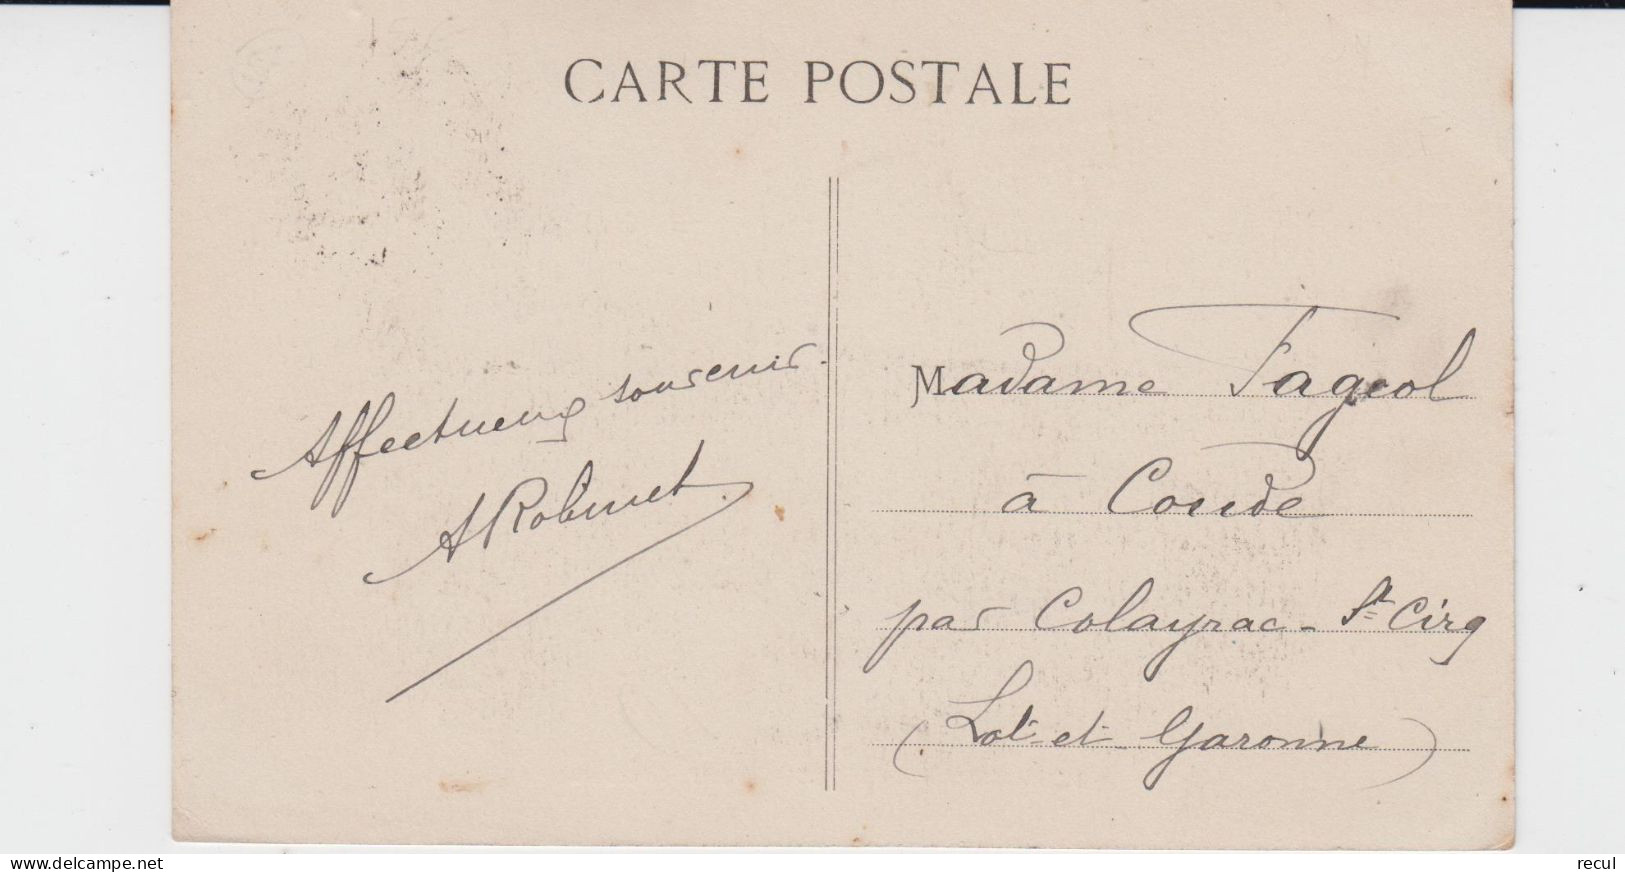 CARTE POSTALE
Affectueux souvenir.
A Robinet
Madame Fageol
à Conde
par Colayrac - St Cirq
(Lot-et-Garonne)
www.delcampe.net
recul